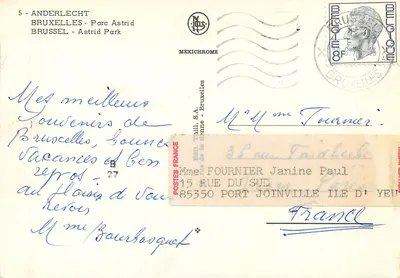 5 - ANDERLECHT
BRUXELLES - Parc Astrid
BRUSSEL - Astrid Park
MEXICHROME
BRUXELLES
BRUSSEL
BELGIE
BELGIQUE
Mes meilleurs
Souvenirs de
Bruxelles, bonnes
vacances et bon
repos -
au plaisir de vous
revoir
Mme
S.A.
Bruxelles
M. Mme Fournier
36 rue
POSTES FRANCE
B
27
Mme FOURNIER Janine Paul
15 RUE DU SUD
85350 PORT JOINVILLE ILE D' YEU
France